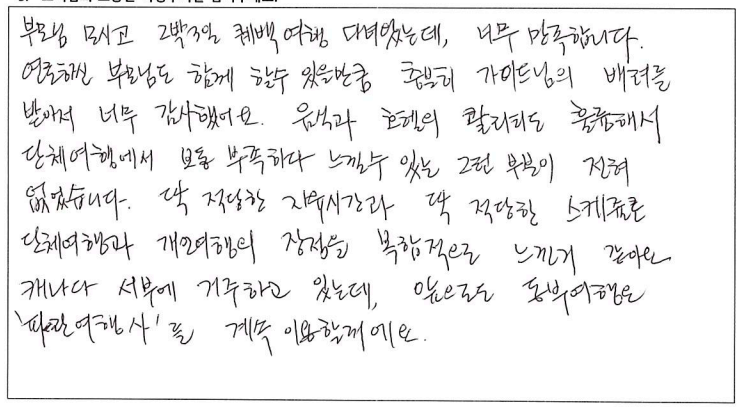 부모님 모시고 2박3일 퀘백여행 다녀왔는데, 너무 만족합니다.
연로하신 부모님도 함께 할수 있을만큼 충분히 가이드님의 배려를
받아서 너무 감사했어요. 음식과 호텔의 퀄리티도 훌륭해서
단체여행에서 보통 부족하다 느낄수 있는 그런 부분이 전혀
없었습니다. 딱 적당한 자유시간과 딱 적당한 스케쥴로
단체여행과 개인여행의 장점을 복합적으로 느낀거 같아요
캐나다 서부에 거주하고 있는데, 앞으로도 동부여행은
'파란여행사'를 계속 이용할께에요.